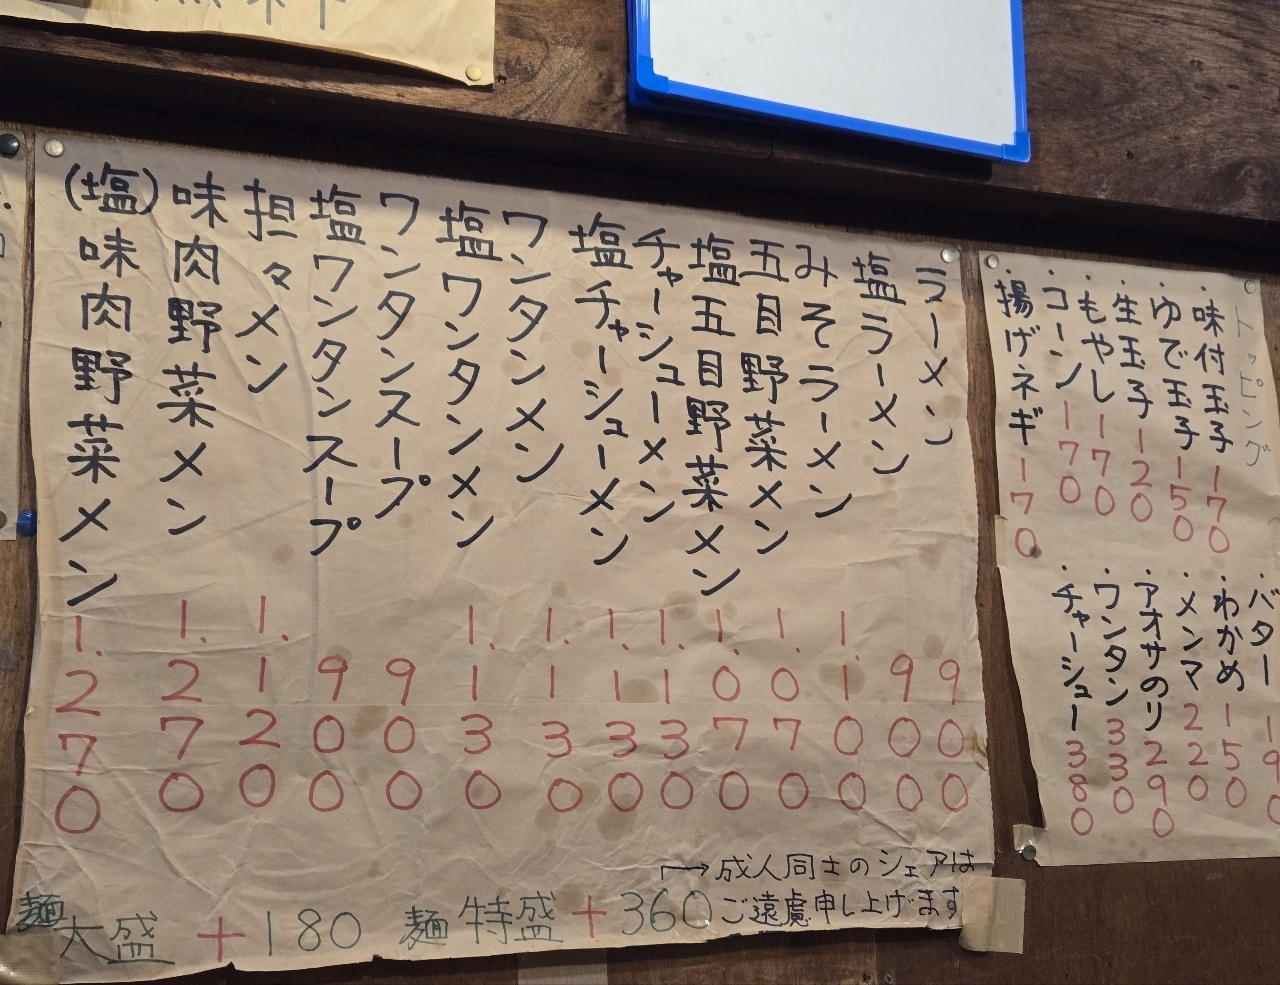 ラーメン 900
塩ラーメン 900
みそラーメン 1.100
五目野菜メン 1.070
塩五目野菜メン 1.070
チャーシューメン 1.130
塩チャーシューメン 1.130
ワンタンメン 1.130
塩ワンタンメン 1.130
ワンタンスープ 900
塩ワンタンスープ 900
担々メン 1.120
味肉野菜メン 1.270
(塩)味肉野菜メン 1.270
麺大盛+180 麺特盛+360
→成人同士のシェアは
ご遠慮申し上げます
トッピング
・味付玉子 170
・ゆで玉子 150
・生玉子 120
・もやし 170
・コーン 170
・揚げネギ 170
・バター 190
・わかめ 150
・メンマ 220
・アオサのり 290
・ワンタン 330
・チャーシュー 380